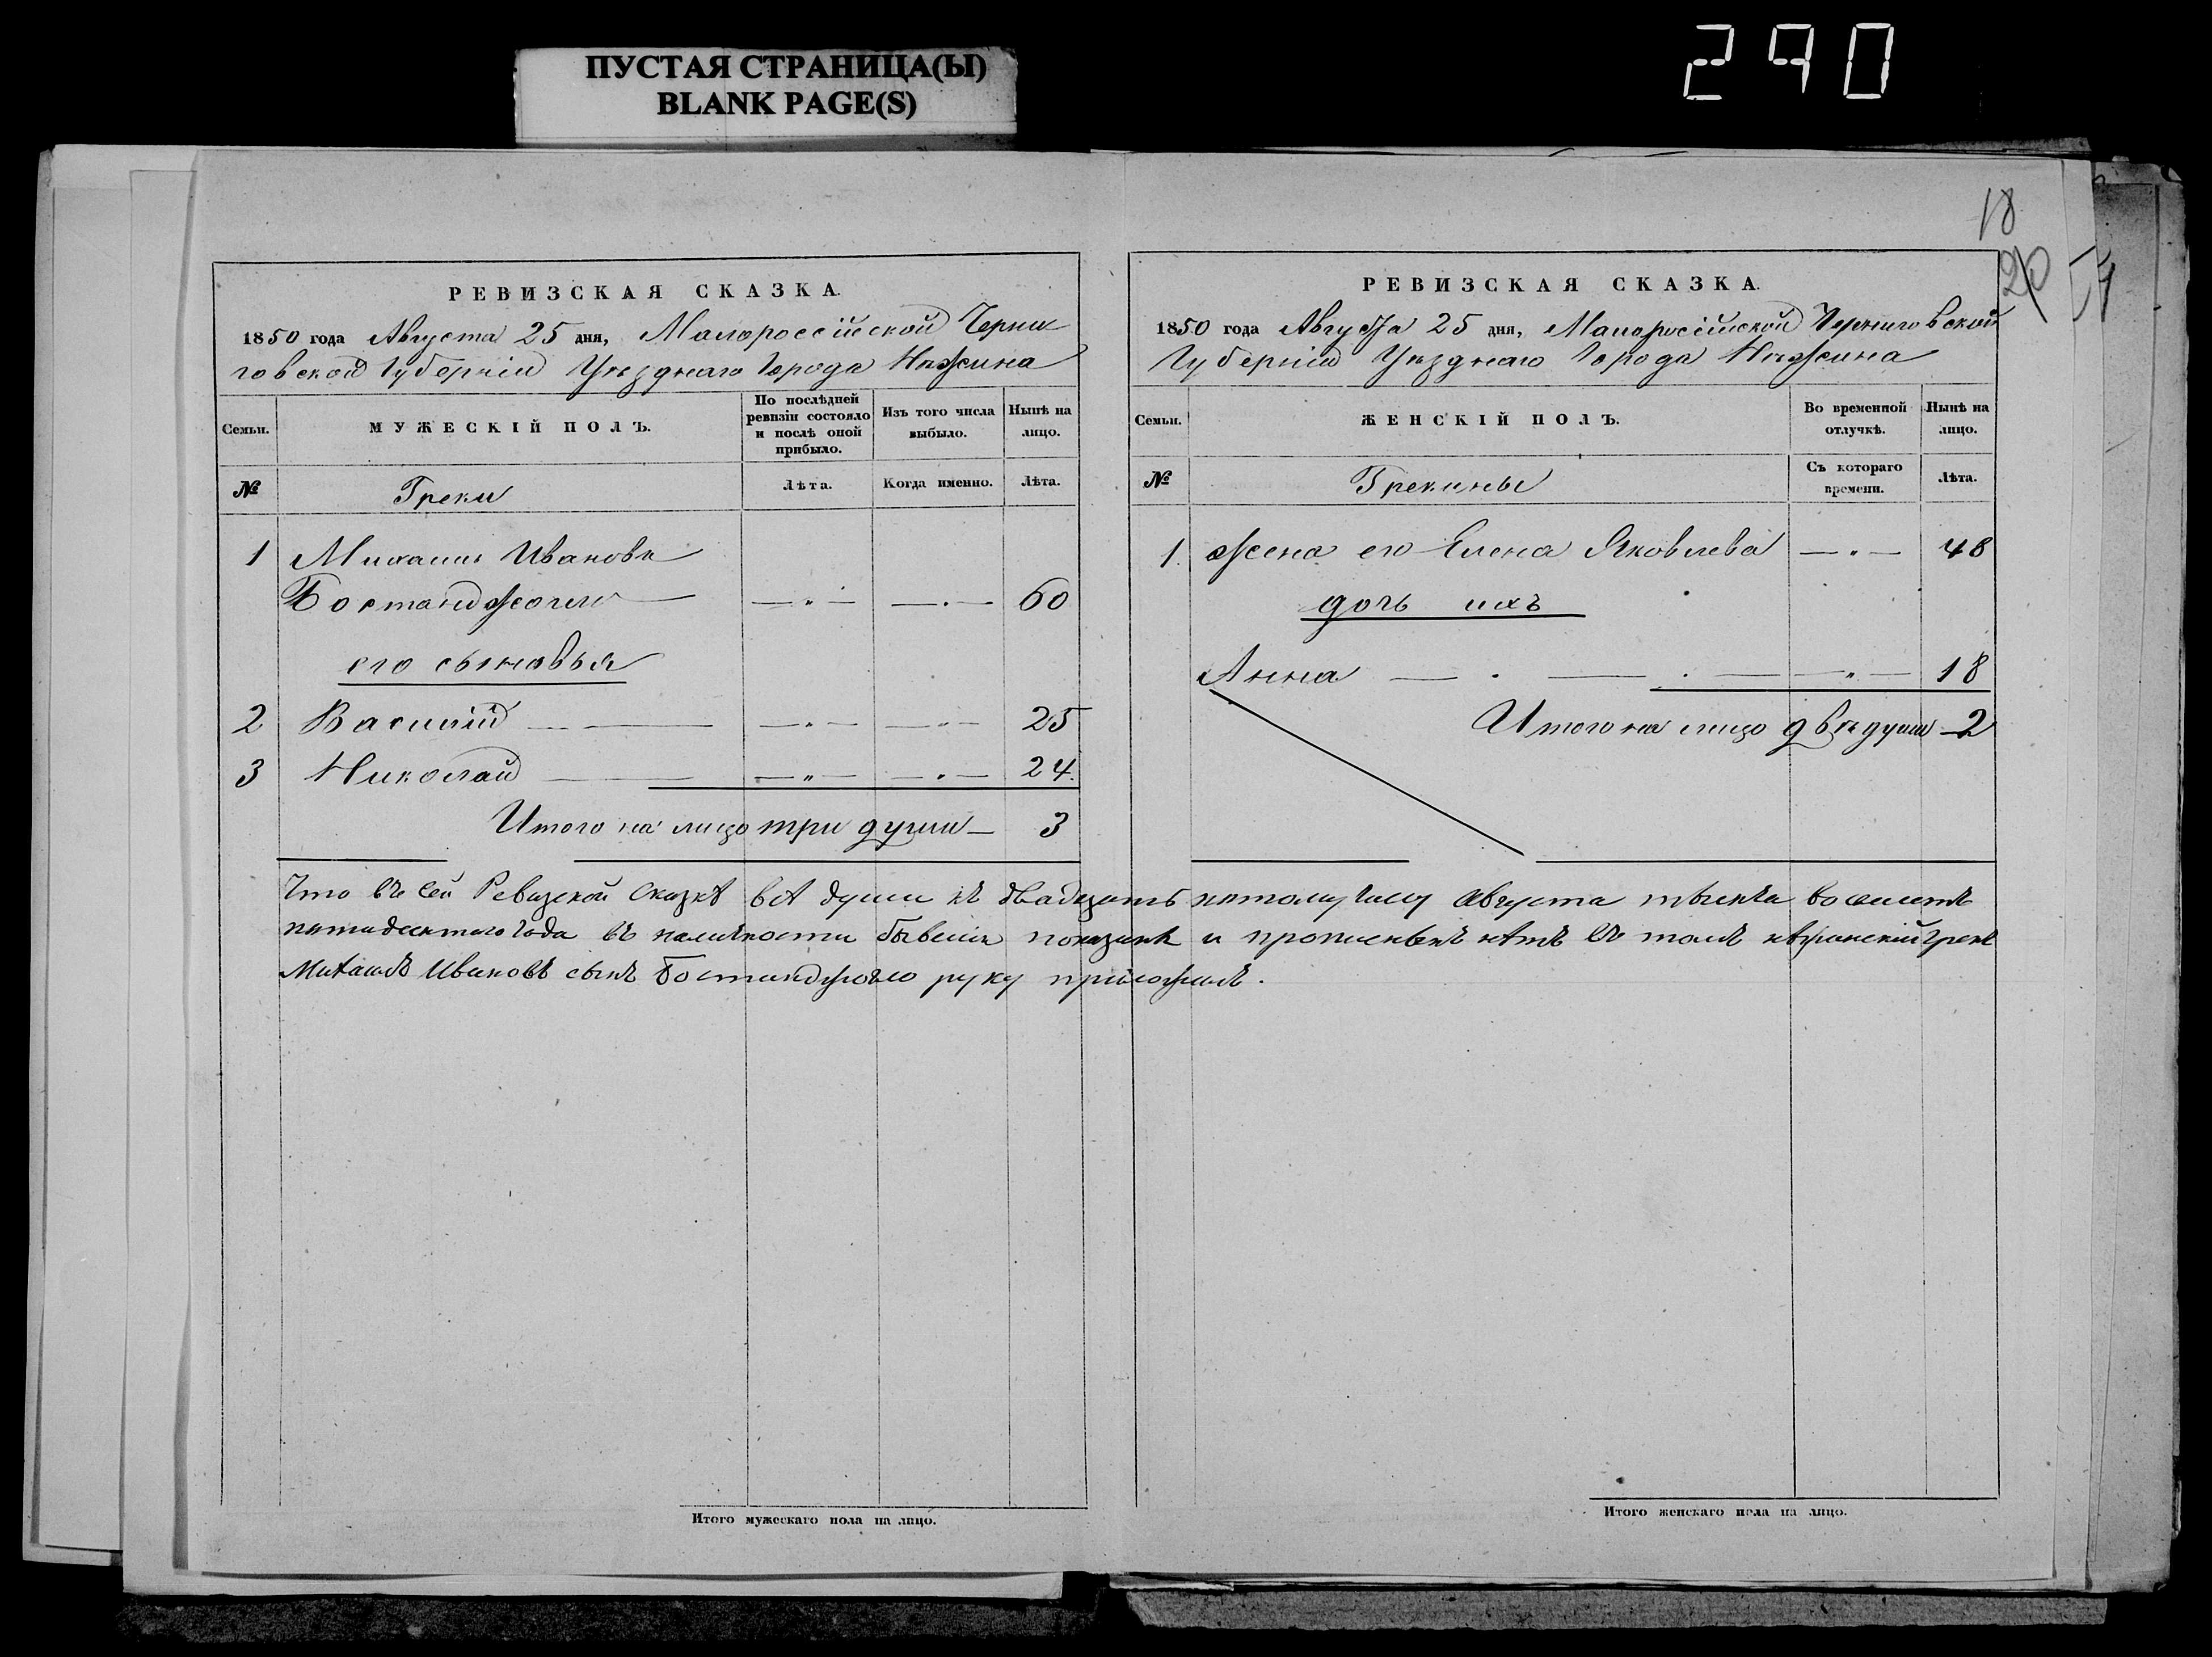 ПУСТАЯ СТРАНИЦА(Ы)
BLANK PAGE(S)
290
18
20
РЕВИЗСКАЯ СКАЗКА.
1850 года Августа 25 дня, Малороссійской Черни
говской Губерніи Уѣзднаго Города Нѣжина
Семьи.
МУЖЕСКІЙ ПОЛЪ.
По послѣдней ревизіи состояло и послѣ оной прибыло.
Изъ того числа выбыло.
Нынѣ на лицо.
№
Греки
Лѣта.
Когда именно.
Лѣта.
1 Михаилъ Ивановъ
Бостанджогло — „ — — „ — 60
его сыновья
2 Василій — — — „ — — „ — 25
3 Николай — — „ — — „ — 24.
Итого на лицо три души — 3
РЕВИЗСКАЯ СКАЗКА.
1850 года Августа 25 дня, Малороссійской Черниговской
Губерніи Уѣзднаго Города Нѣжина
Семьи.
ЖЕНСКІЙ ПОЛЪ.
Во временной отлучкѣ.
Нынѣ на лицо.
№
Грекины
Съ котораго времени.
Лѣта.
1. жена его Елена Яковлева — „ — 48
дочь ихъ
Анна — „ — „ — „ — 18
Итого на лицо двѣ души — 2
Что въ сей Ревизской Сказкѣ всѣ души къ двадцать пятому числу Августа тысяча восемьсотъ
пятидесятого года въ наличности бывшія показаны и прописныхъ нѣтъ въ томъ нѣжинскій грекъ
Михаилъ Ивановъ сынъ Бостанджогло руку приложилъ.
Итого мужескаго пола на лицо.
Итого женскаго пола на лицо.